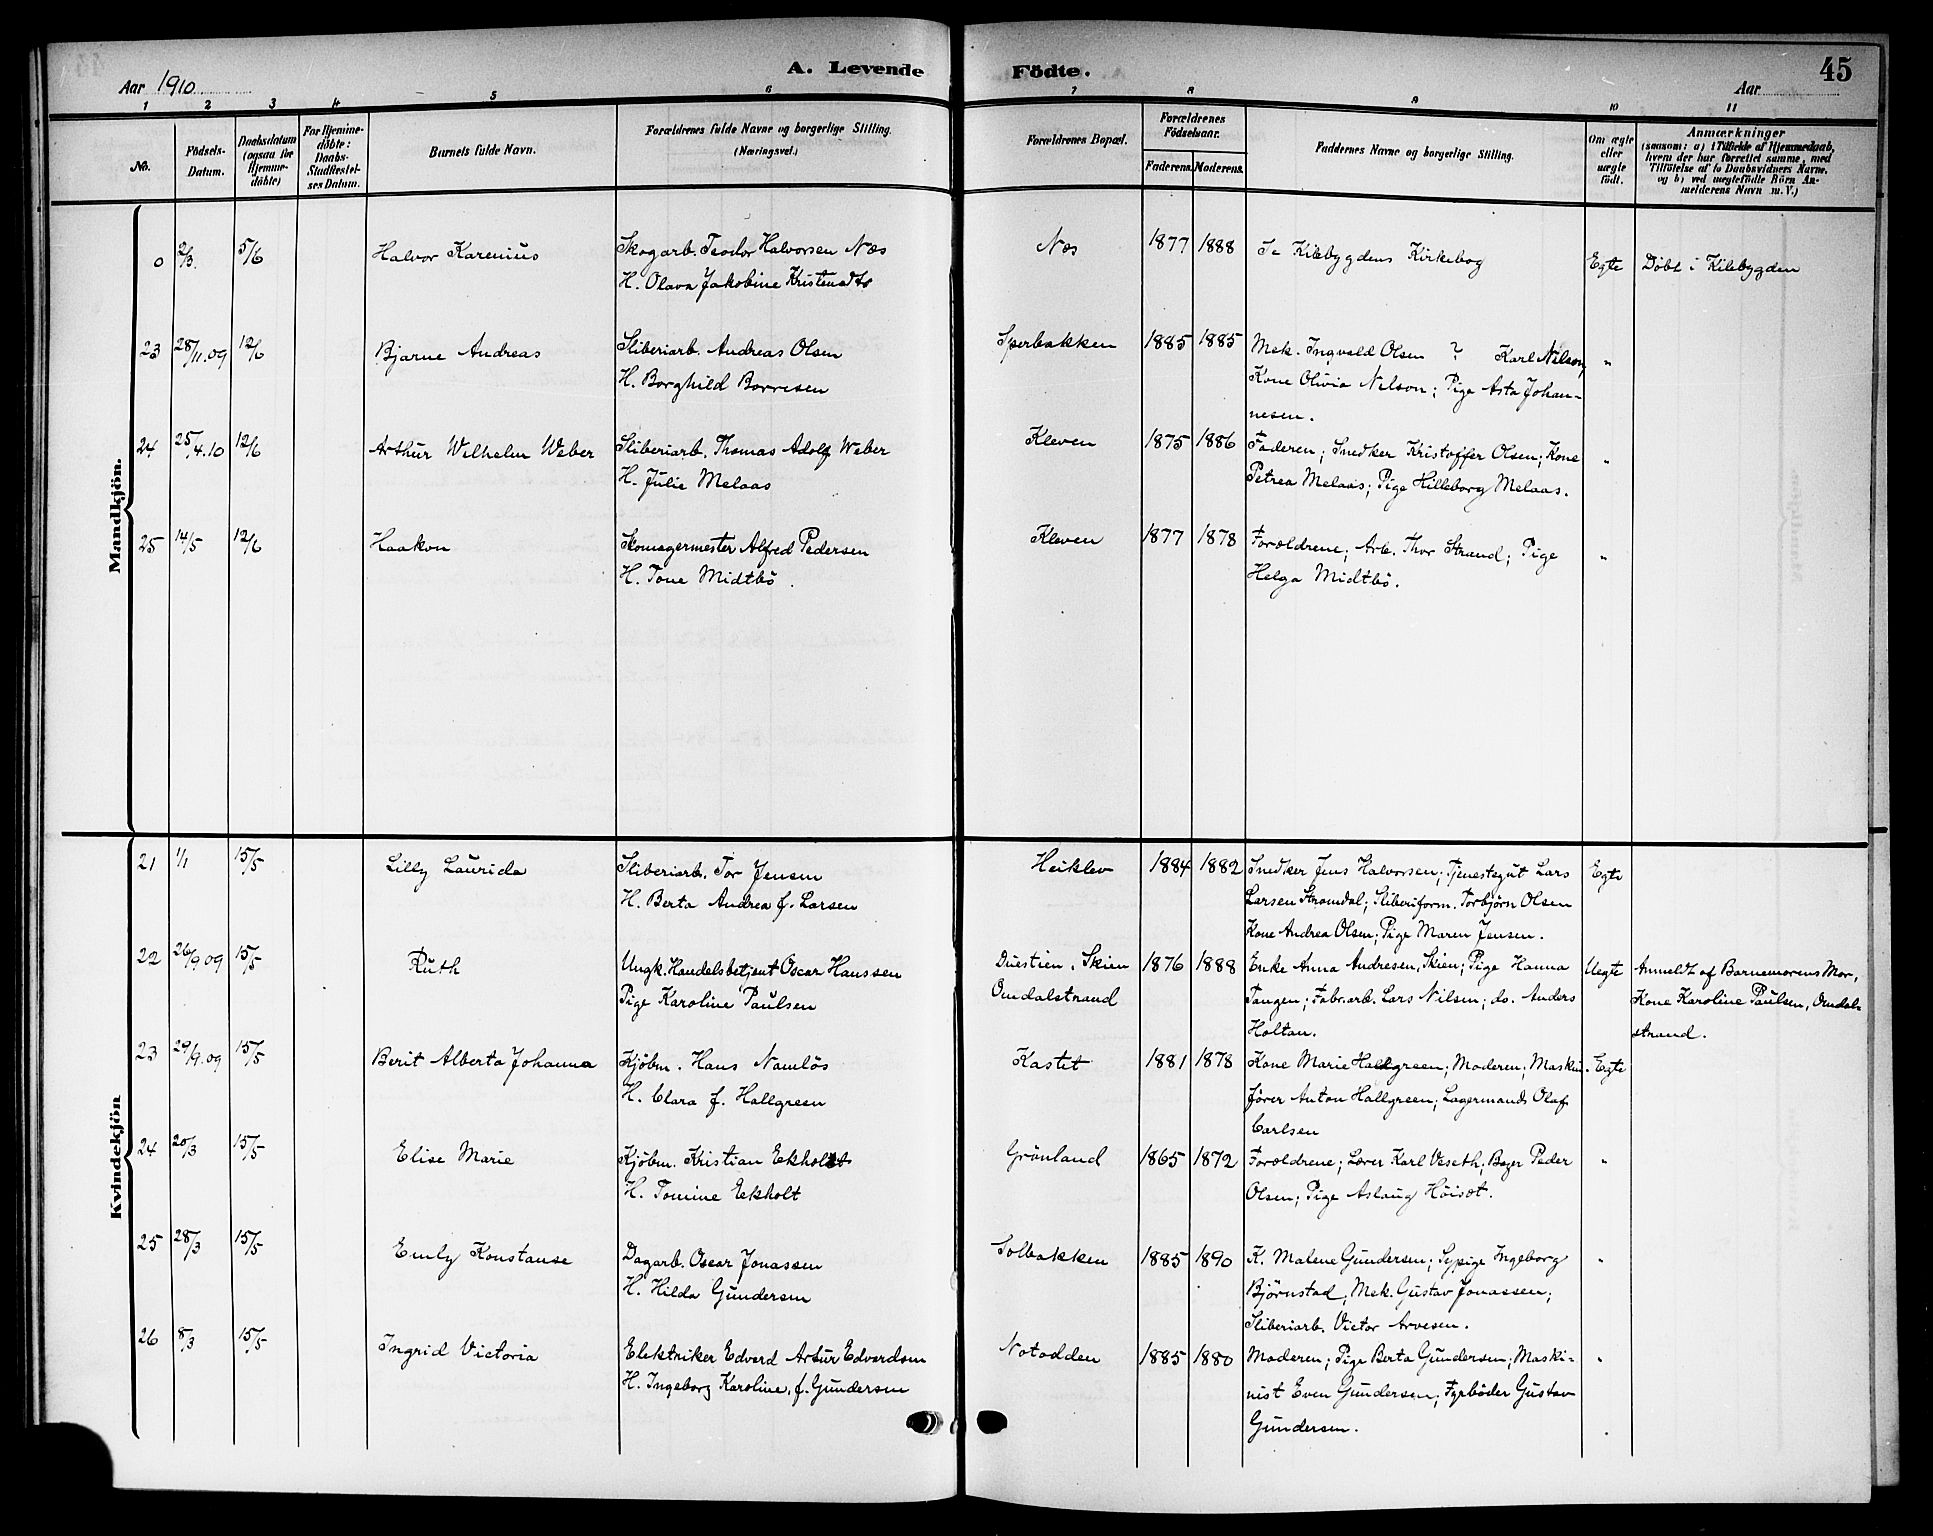 A. Levende Födte.
45
Aar 1910
Aar
1 2 3 4 5 6 7 8 9 10 11
No.
Födsels-Datum.
Daabsdatum (ogsaa for Hjemme-döbte)
For Hjemme-döbte: Daabs-Stadfæstel-ses Datum.
Barnets fulde Navn.
Forældrenes fulde Navne og borgerlige Stilling. (Næringsvei.)
Forældrenes Bopæl.
Forældrenes Födselsaar.
Faderens. Moderens.
Faddernes Navne og borgerlige Stilling.
Om ægte eller uægte födt.
Anmærkninger
(saasom: a) i Tilfælde af Hjemmedaab,
hvem der har forrettet samme, med
Tilföielse af to Daabsvidners Navne.
og b) ved uægtefödte Börn An-
melderens Navn m. V.)
Mandkjön.
0 2/3. 5/6 Halvor Karenius Skogarb. Teodor Halvorsen Næs Næs 1877 1888 Se Kilebygdens Kirkebog Egte Döbt i Kilebygden
H. Olava Jakobine Kristensdtr
23 28/11.09 12/6 Bjarne Andreas Sliberiarb. Andreas Olsen Sperbakken 1885 1885 Mek. Ingvald Olsen ? Karl Nilsen, "
H. Borghild Borresen Kone Olivia Nilson; Pige Asta Johan-
nesen.
24 25/4.10 12/6 Arthur Wilhelm Weber Sliberiarb. Thomas Adolf Weber Kleven 1875 1886 Faderen; Snedker Kristoffer Olsen; Kone "
H. Julie Melaas Petrea Melaas; Pige Hilleborg Melaas.
25 14/5 12/6 Haakon Skomagermester Alfred Pedersen Kleven 1877 1878 Forældrene; Arb. Thor Strand; Pige "
H. Tone Midtbö. Helga Midtbö.
Kvindekjön
21 1/1 15/5 Lilly Laurida Sliberiarb. Tor Jensen Heiklev 1884 1882 Snedker Jens Halvorsen; Tjenestegut Lars Egte
H. Berta Andrea f. Larsen Larsen Strømdal; Sliberiform. Torbjörn Olsen
Kone Andrea Olsen; Pige Maren Jensen.
22 26/9.09 15/5 Ruth Ungk. Handelsbetjent Oscar Hanssen Duestien, Skien 1876 1888 Enke Anna Andresen, Skien; Pige Hanna Uegte Anmeldt af Barnemorens Mor,
Pige Karoline Paulsen Omdalstrand Tangen; Fabr.arb. Lars Nilsen; do. Anders Kone Karoline Paulsen, Omdal-
Holtan. strand.
23 29/9.09 15/5 Berit Alberta Johanna Kjöbm. Hans Namlös Kastet 1881 1878 Kone Marie Hallgreen; Moderen; Maskin- Egte
H. Clara f. Hallgreen fører Anton Hallgreen; Lagermand Olaf
Carlsen
24 20/3 15/5 Elise Marie Kjöbm. Kristian Ekholt Grönland 1865 1872 Forældrene; Lærer Karl Veseth; Bager Peder "
H. Tomine Ekholt Olsen; Pige Aslaug Höisæt.
25 28/3 15/5 Emly Konstanse Dagarb. Oscar Jonassen Solbakken 1885 1890 K. Malene Gundersen; Sypige Ingeborg "
H. Hilda Gundersen Björnstad; Mek. Gustav Jonassen;
Sliberiarb. Victor Arvesen.
26 8/3 15/5 Ingrid Victoria Elektriker Edvard Artur Edvardsen Notodden 1885 1880 Moderen; Pige Berta Gundersen; Maski- "
H. Ingeborg Karoline, f. Gundersen nist Even Gundersen; Fyrböder Gustav
Gundersen.